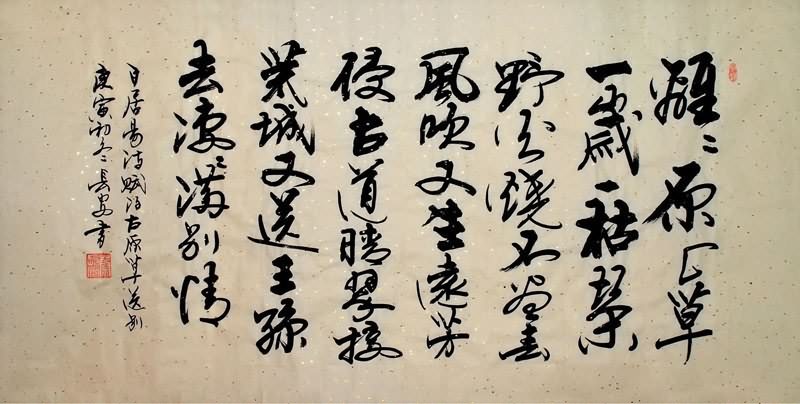 離〻原上草
一歲一枯榮
野火燒不盡春
風吹又生遠芳
侵古道晴翠接
荒城又送王孫
去凄〻滿別情
白居易詩賦得古原草送別
庚寅初冬長安書